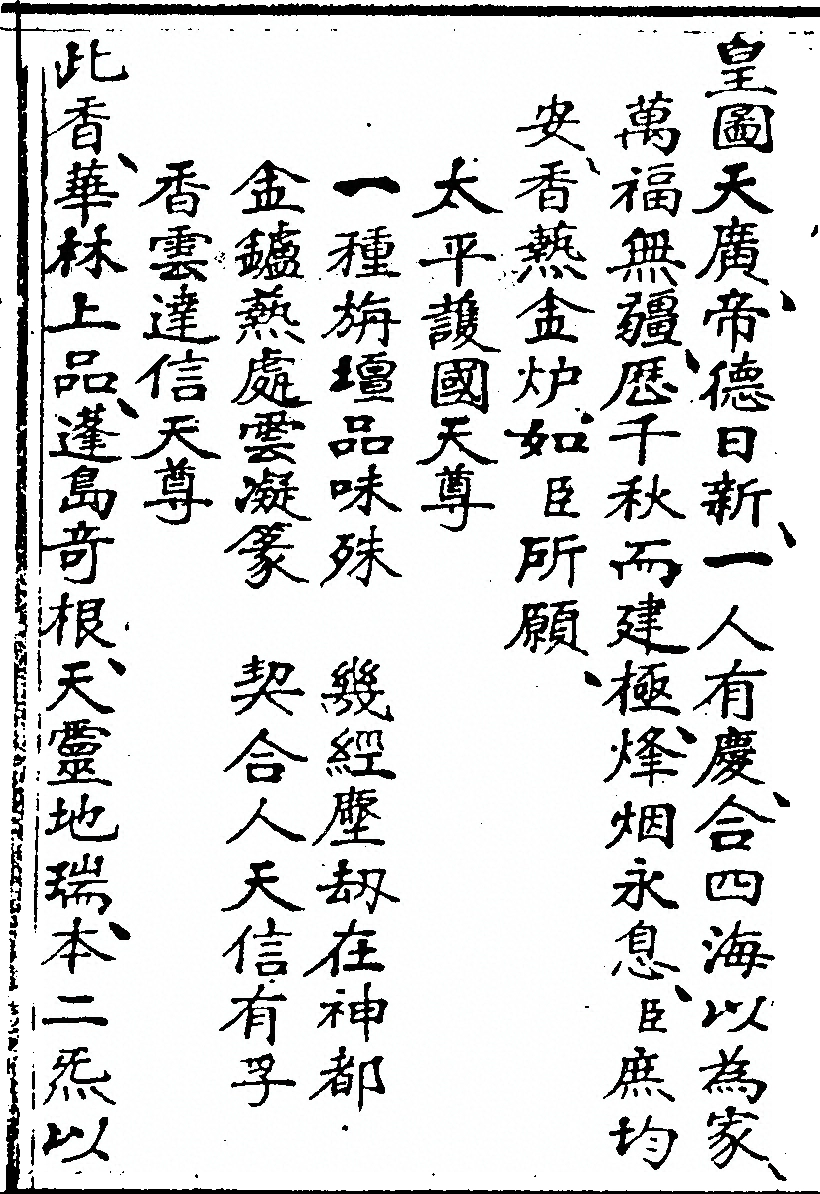 皇圖天廣、帝德日新、一人有慶、合四海以為家、
萬福無疆、歷千秋而建極、烽烟永息、臣庶均
安、香爇金炉、如臣所願、
太平護國天尊
一種旃壇品味殊 幾經塵刼在神都
金鑪爇處雲凝篆 契合人天信有孚
香雲達信天尊
此香、華林上品、蓬島奇根、天靈地瑞、本二炁以